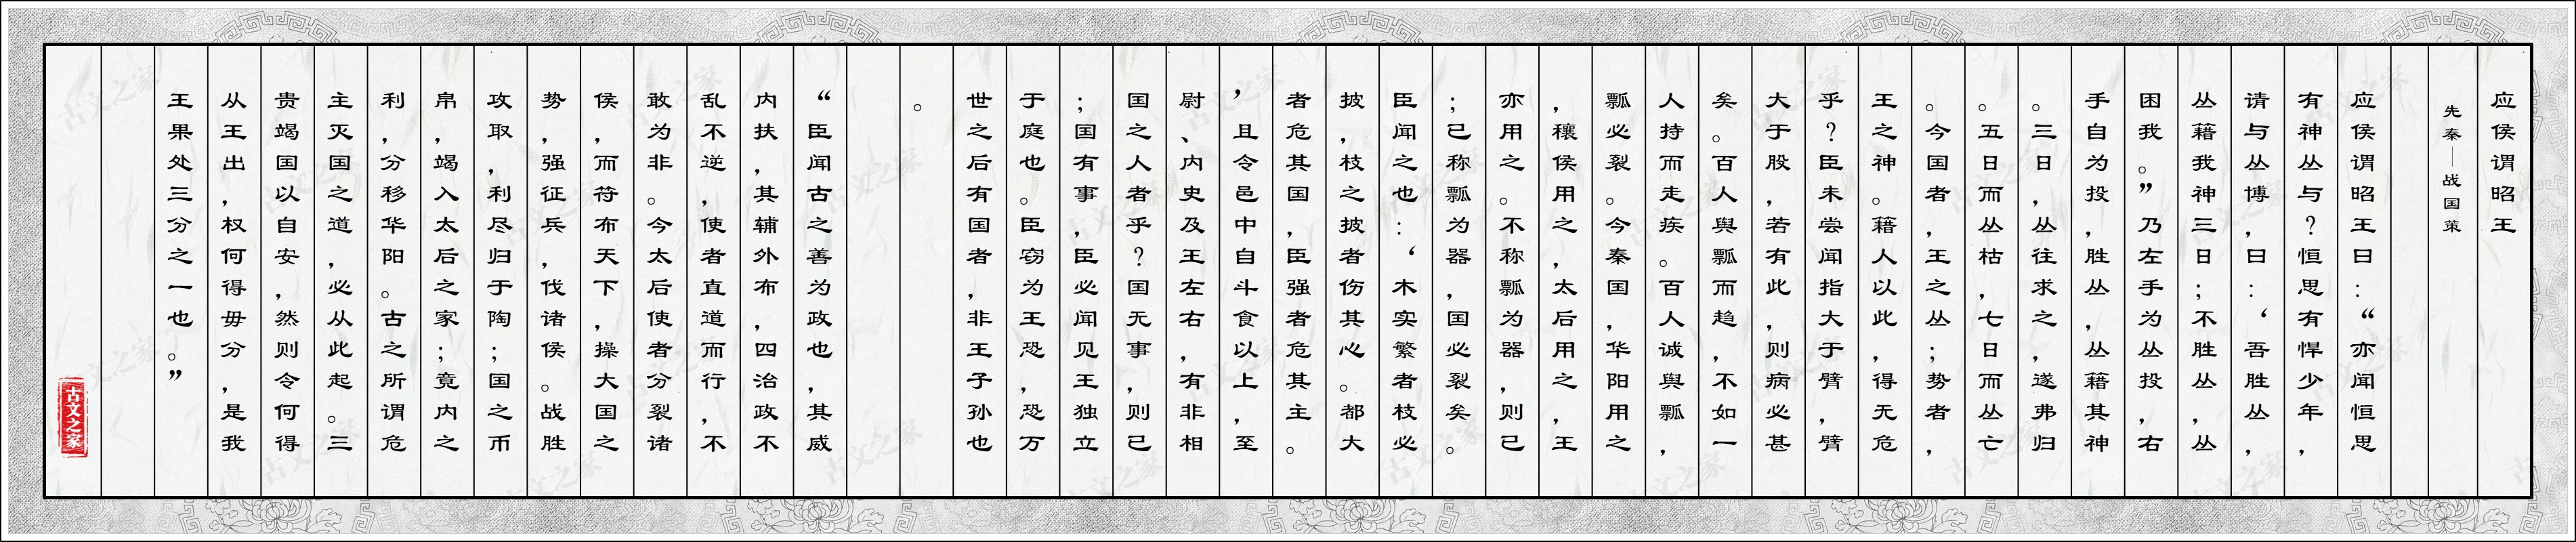 应侯谓昭王
先秦—战国策
应侯谓昭王曰：“亦闻恒思
有神丛与？恒思有悍少年，
请与丛博，曰：‘吾胜丛，
丛藉我神三日；不胜丛，丛
困我。”乃左手为丛投，右
手自为投，胜丛，丛藉其神
。三日，丛往求之，遂弗归
。五日而丛枯，七日而丛亡
。今国者，王之丛；势者，
王之神。藉人以此，得无危
乎？臣未尝闻指大于臂，臂
大于股，若有此，则病必甚
矣。百人舆瓢而趋，不如一
人持而走疾。百人诚舆瓢，
瓢必裂。今秦国，华阳用之
，穰侯用之，太后用之，王
亦用之。不称瓢为器，则已
；已称瓢为器，国必裂矣。
臣闻之也：‘木实繁者枝必
披，枝之披者伤其心。都大
者危其国，臣强者危其主。
’且令邑中自斗食以上，至
尉、内史及王左右，有非相
国之人者乎？国无事，则已
；国有事，臣必闻见王独立
于庭也。臣窃为王恐，恐万
世之后有国者，非王子孙也
。
“臣闻古之善为政也，其威
内扶，其辅外布，四治政不
乱不逆，使者直道而行，不
敢为非。今太后使者分裂诸
侯，而符布天下，操大国之
势，强征兵，伐诸侯。战胜
攻取，利尽归于陶；国之币
帛，竭入太后之家；竟内之
利，分移华阳。古之所谓危
主灭国之道，必从此起。三
贵竭国以自安，然则令何得
从王出，权何得毋分，是我
王果处三分之一也。”
古文之家